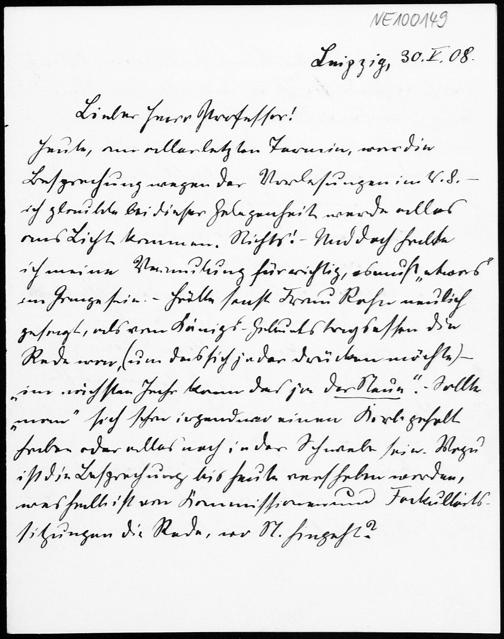 NE100149
Leipzig, 30. V. 08.
Lieber Herr Professor!
Heute, am allerletzten Termin, war die
Besprechung wegen der Vorlesungen im W.S. –
ich glaubte bei dieser Gelegenheit werde alles
ans Licht kommen. Nichts! – Und doch halte
ich meine Vermutung für richtig, es muß „etwas"
im Gange sein. – Hätte sonst Frau Rohn neulich
gesagt, als vom Königs-Geburtstagsessen die
Rede war, (um das sich jeder drücken möchte) –
„im nächsten Jahr kann das ja der Neue". – Sollte
„man" sich schon irgendwo einen Korb geholt
haben oder alles noch in der Schwebe sein. Wozu
ist die Besprechung bis heute verschoben worden,
weshalb ist von Kommissionen und Fakultäts-
sitzungen die Rede, wo St. hingeht?